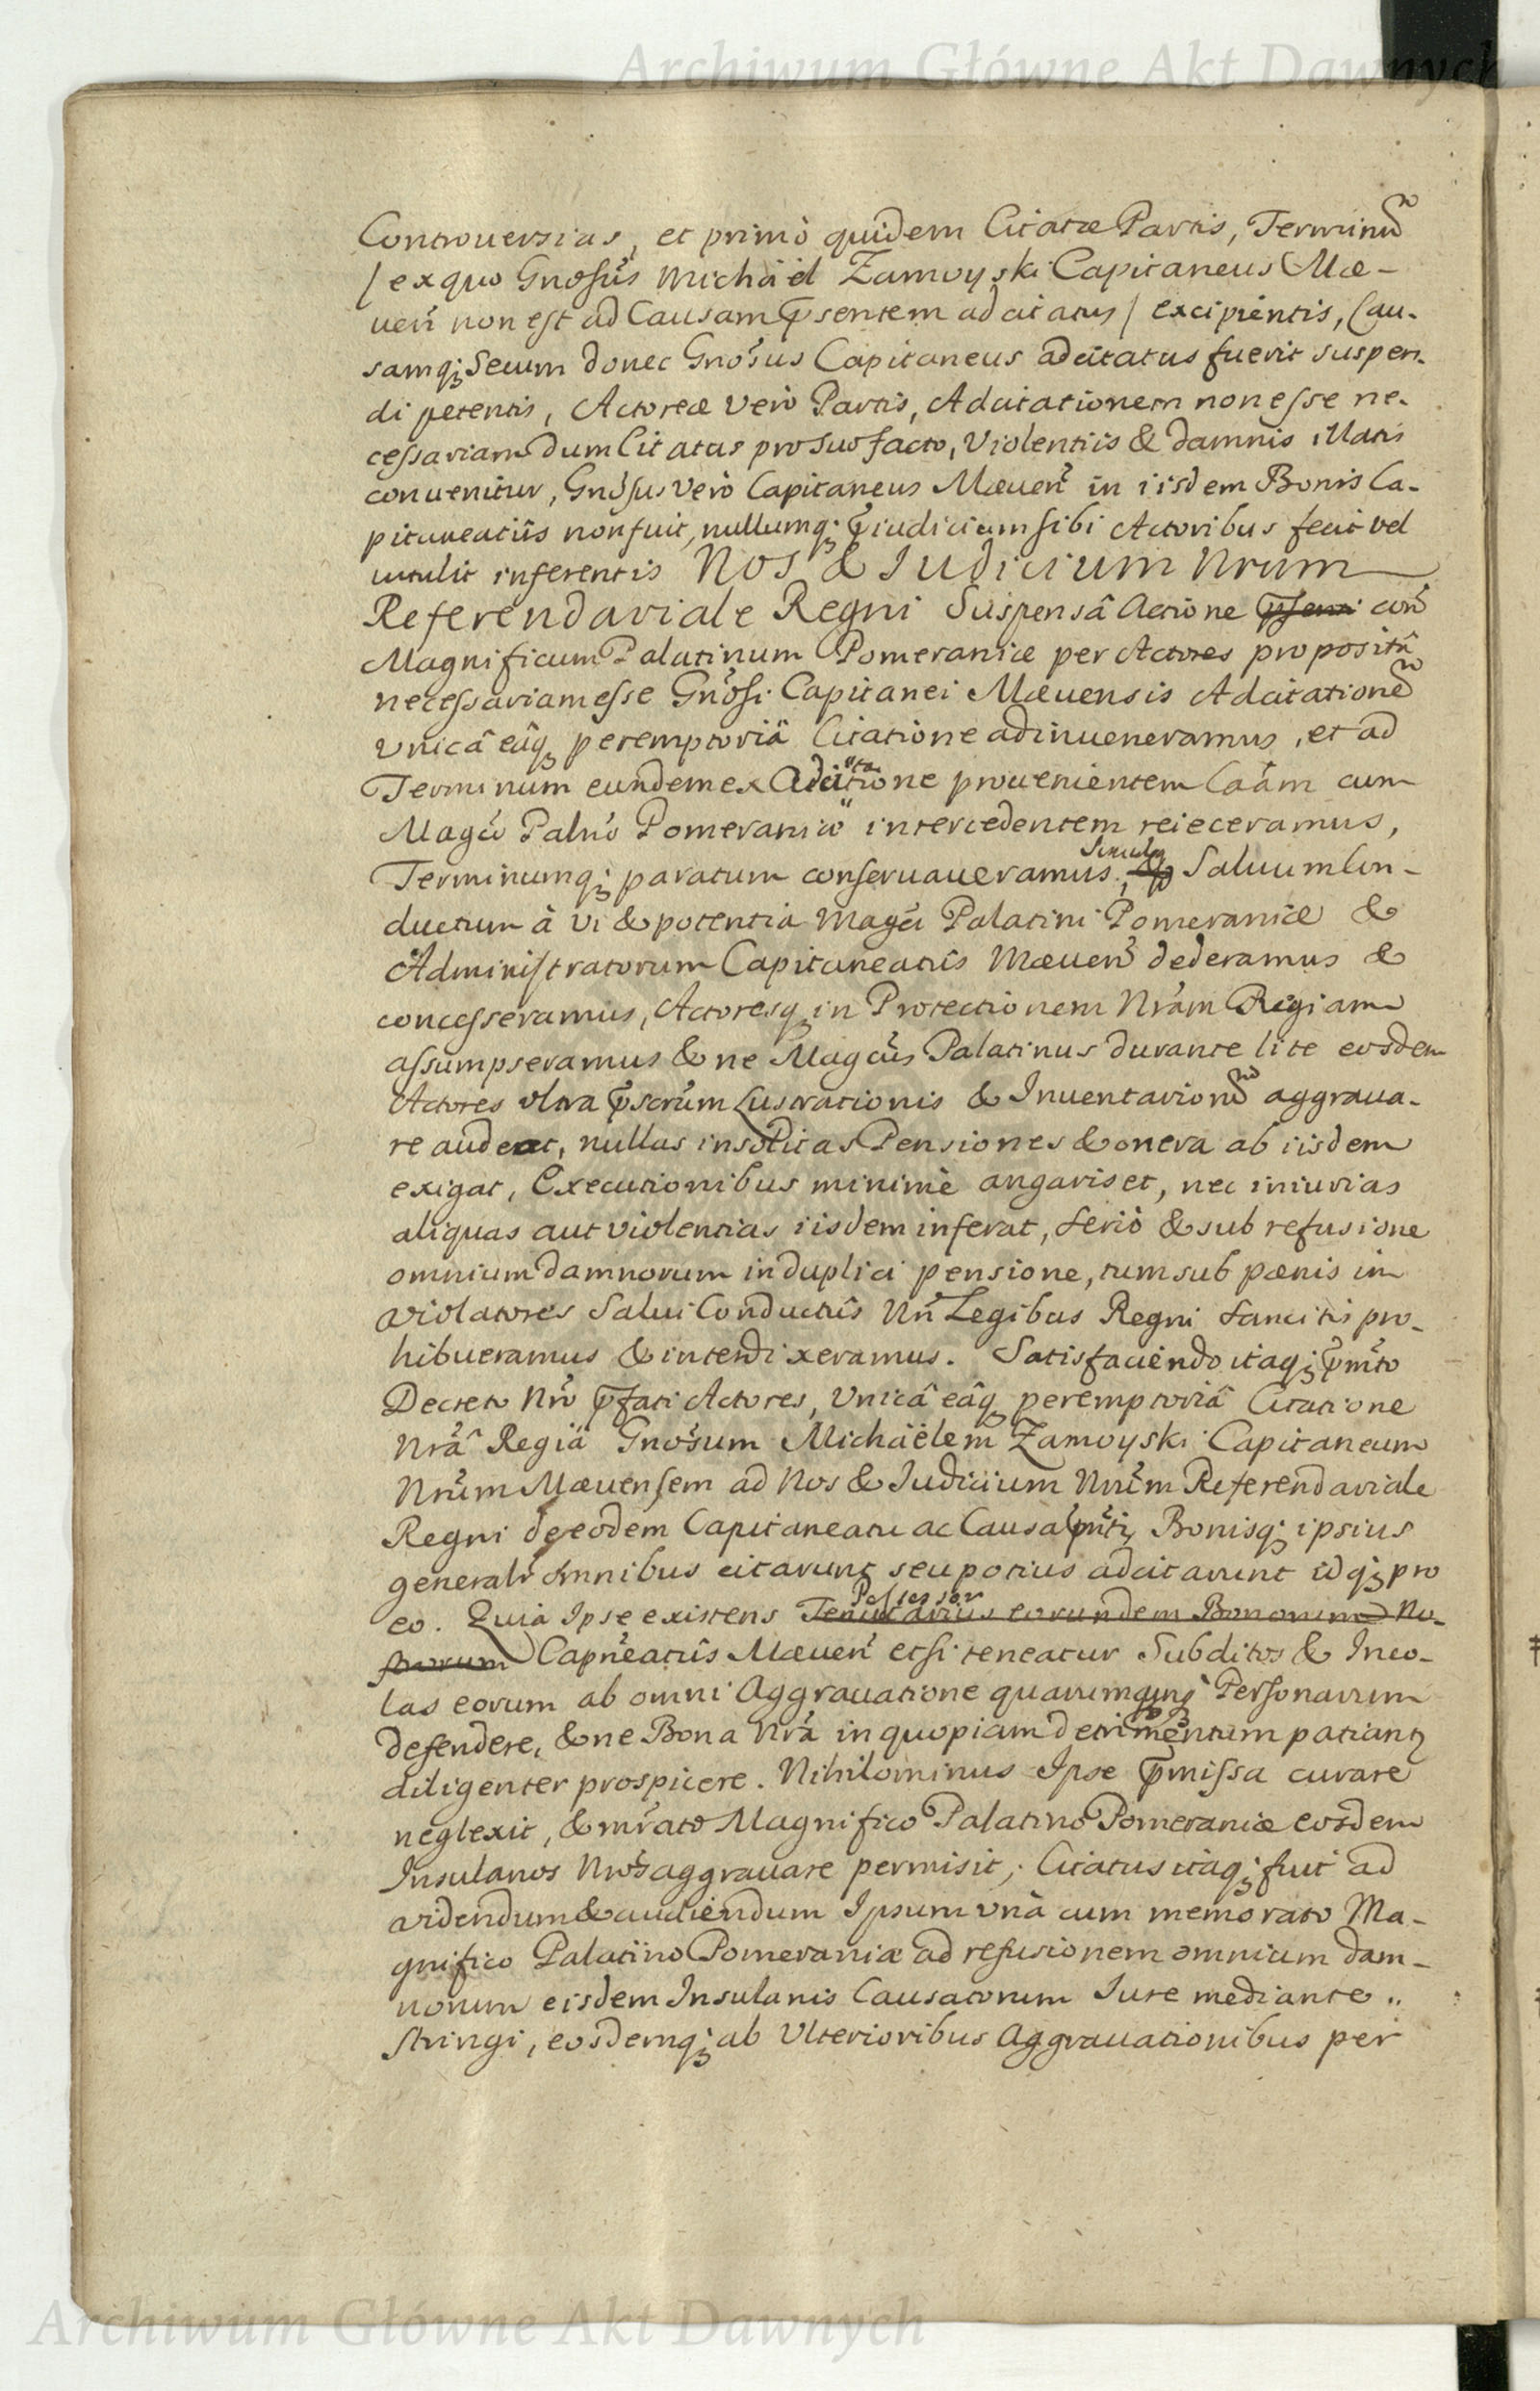 Archiwum Główne Akt Dawnych
Controuersias, et primò quidem Citatæ Partis, Terminũ
/ ex quo Gnosũs Michäel Zamoyski Capitaneus Mæ-
ueñ non est ad Causam p̃sentem adcitatus / excipientis, Cau-
samq; secum donec Gnõsus Capitaneus adcitatus fuerit suspen-
di petentis, Actoreæ verò Partis, Adcitationem non esse ne-
cessariam dum Citatus pro suo facto, Violentiis & damnis illatis
conuenitur, Gnõsus verò Capitaneus Mæueñ in iisdem Bonis Ca-
pitaneatûs non fuit, nullumq; p̃iudicium sibi Actoribus fecit vel
intulit inferentis Nos & Iudicium Nrum
Referendariale Regni Suspensâ Actione p̃senti con͂
Magnificum Palatinum Pomeraniæ per Actores propositâ
necessariam esse Gnõsi Capitanei Mæuensis Adcitationẽ
vnicâ eâq; peremptoriâ Citatione adinueneramus, et ad
Terminum eundem ex Adcitatione prouenientem Caãm cum
Magco Palno Pomeraniæ intercedentem reieceramus,
Terminumq; paratum conseruaueramus, Simulq; Saluum Con-
ductum à vi & potentia Magci Palatini Pomeraniæ &
Administratorum Capitaneatûs Mæueñ dederamus &
concesseramus, Actoresq; in Protectionem Nrãm Regiam
assumpseramus & ne Magcus Palatinus durante lite eosdem
Actores vltra p̃scrũm Lustrationis & Inuentariorũ aggraua-
re audeat, nullas insolitas Pensiones & onera ab iisdem
exigat, Executionibus minimè angariset, nec iniurias
aliquas aut violentias iisdem inferat, seriò & sub refusione
omnium damnorum in duplici pensione, tum sub pœnis in
violatores Salui Conductûs Nri Legibus Regni sancitis pro-
hibueramus & interdixeramus. Satisfaciendo itaq; p̃mto
Decreto Nrõ p̃fati Actores, Vnicâ eâq; peremptoriâ Citatione
Nrâ Regiâ Gnõsum Michäëlem Zamoyski Capitaneum
Nrũm Mæuensem ad Nos & Iudicium Nrũm Referendariale
Regni de eodem Capitaneatu ac Causa p̃nti, Bonisq; ipsius
generalr omnibus citarunt seu potius adcitarunt idq; pro
eo. Quia Ipse existens Possessor Tenutarius eorundem Bonorum No-
strorum Capneatûs Mæueñ etsi teneatur Subditos & Inco-
las eorum ab omni Aggrauatione quarumcunq; Personarum
defendere, & ne Bona Nrã in quopiam detrimentum patiantr
diligenter prospicere. Nihilominus Ipse p̃missa curare
neglexit, & mrato Magnifico Palatino Pomeraniæ eosdem
Insulanos Nrõs aggrauare permisit; Citatus itaq; fuit ad
videndum & audiendum Ipsum vnà cum memorato Ma-
gnifico Palatino Pomeraniæ ad refusionem omnium dam-
norum eisdem Insulanis Causatorum Iure mediante
stringi, eosdemq; ab Vlterioribus Aggrauationibus per
Archiwum Główne Akt Dawnych